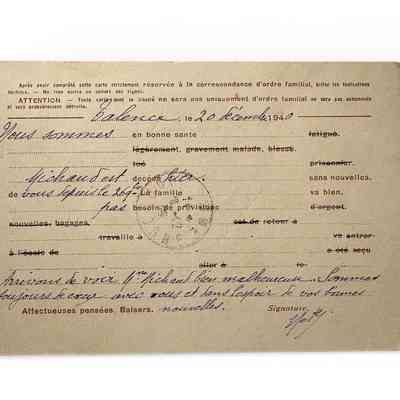 Après avoir complété cette carte strictement réservée à la correspondance d'ordre familial, biffer les indications
inutiles. — Ne rien écrire en dehors des lignes.
ATTENTION. — Toute carte dont le libellé ne sera pas uniquement d'ordre familial ne sera pas acheminée
et sera probablement détruite.
Valence, le 20 décembre 1940
Nous sommes en bonne santé fatigué.
légèrement, gravement malade, blessé.
tué
Michaud est décédé sans nouvelles.
de vous depuis le 26 La famille va bien.
pas besoin de provisions d'argent.
nouvelles, bagages est de retour à
travaille à va entrer
à l'école de a été reçu
aller à le
Michaud bien malheureuse. Sommes
toujours de cœur avec vous et dans l'espoir de vos bonnes
Affectueuses pensées. Baisers. nouvelles. Signature.